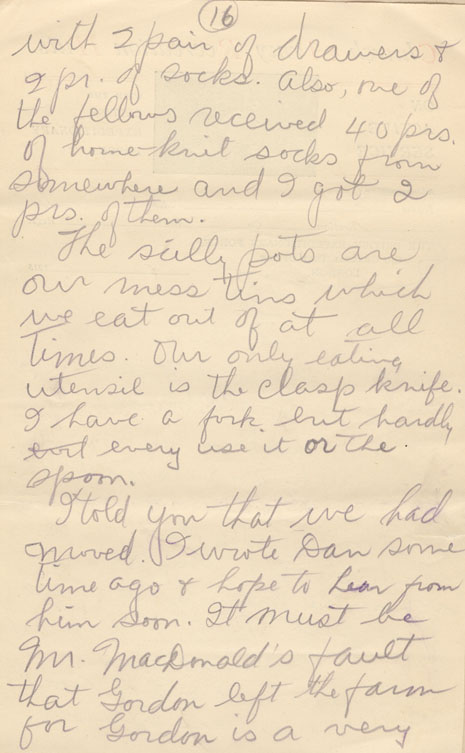 16
with 2 pair of drawers &
2 pr. of socks. Also, one of
the fellows received 40 prs.
of home-knit socks from
somewhere and I got 2
prs. of them.
The silly pots are
our mess tins which
we eat out of at all
times. Our only eating
utensil is the clasp knife.
I have a fork but hardly
every use it or the
spoon.
I told you that we had
moved. I wrote Dan some
time ago & hope to hear from
him soon. It must be
Mr. MacDonald's fault
that Gordon left the farm
for Gordon is a very